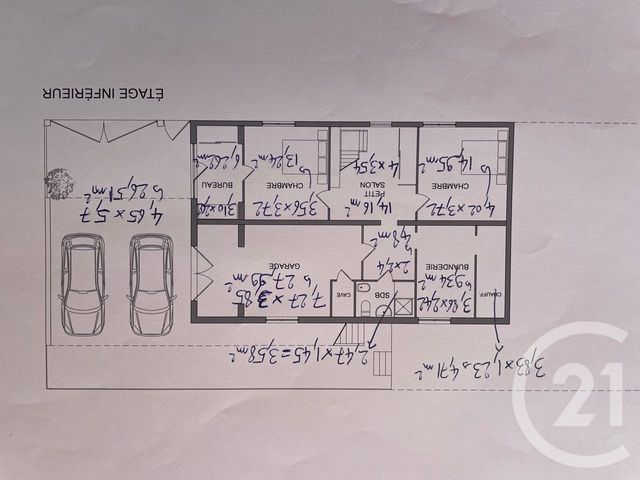 3,83 x 1,23 ↳ 4,71 m²
2,47 x 1,45 = 3,58 m²
CHAUFF.
3,86 x 2,42
↳ 9,34 m²
BUANDERIE
SDB
CAVE
7,27 x 3,85
↳ 27,99 m²
GARAGE
2 x 2,4
4,8 m²
4,02 x 3,72
CHAMBRE
↳ 14,95 m²
14,16 m²
PETIT
SALON
4 x 3,54
3,56 x 3,72
CHAMBRE
↳ 13,24 m²
BUREAU
6,262 m²
4,65 x 5,7
↳ 26,51 m²
ÉTAGE INFÉRIEUR
C21